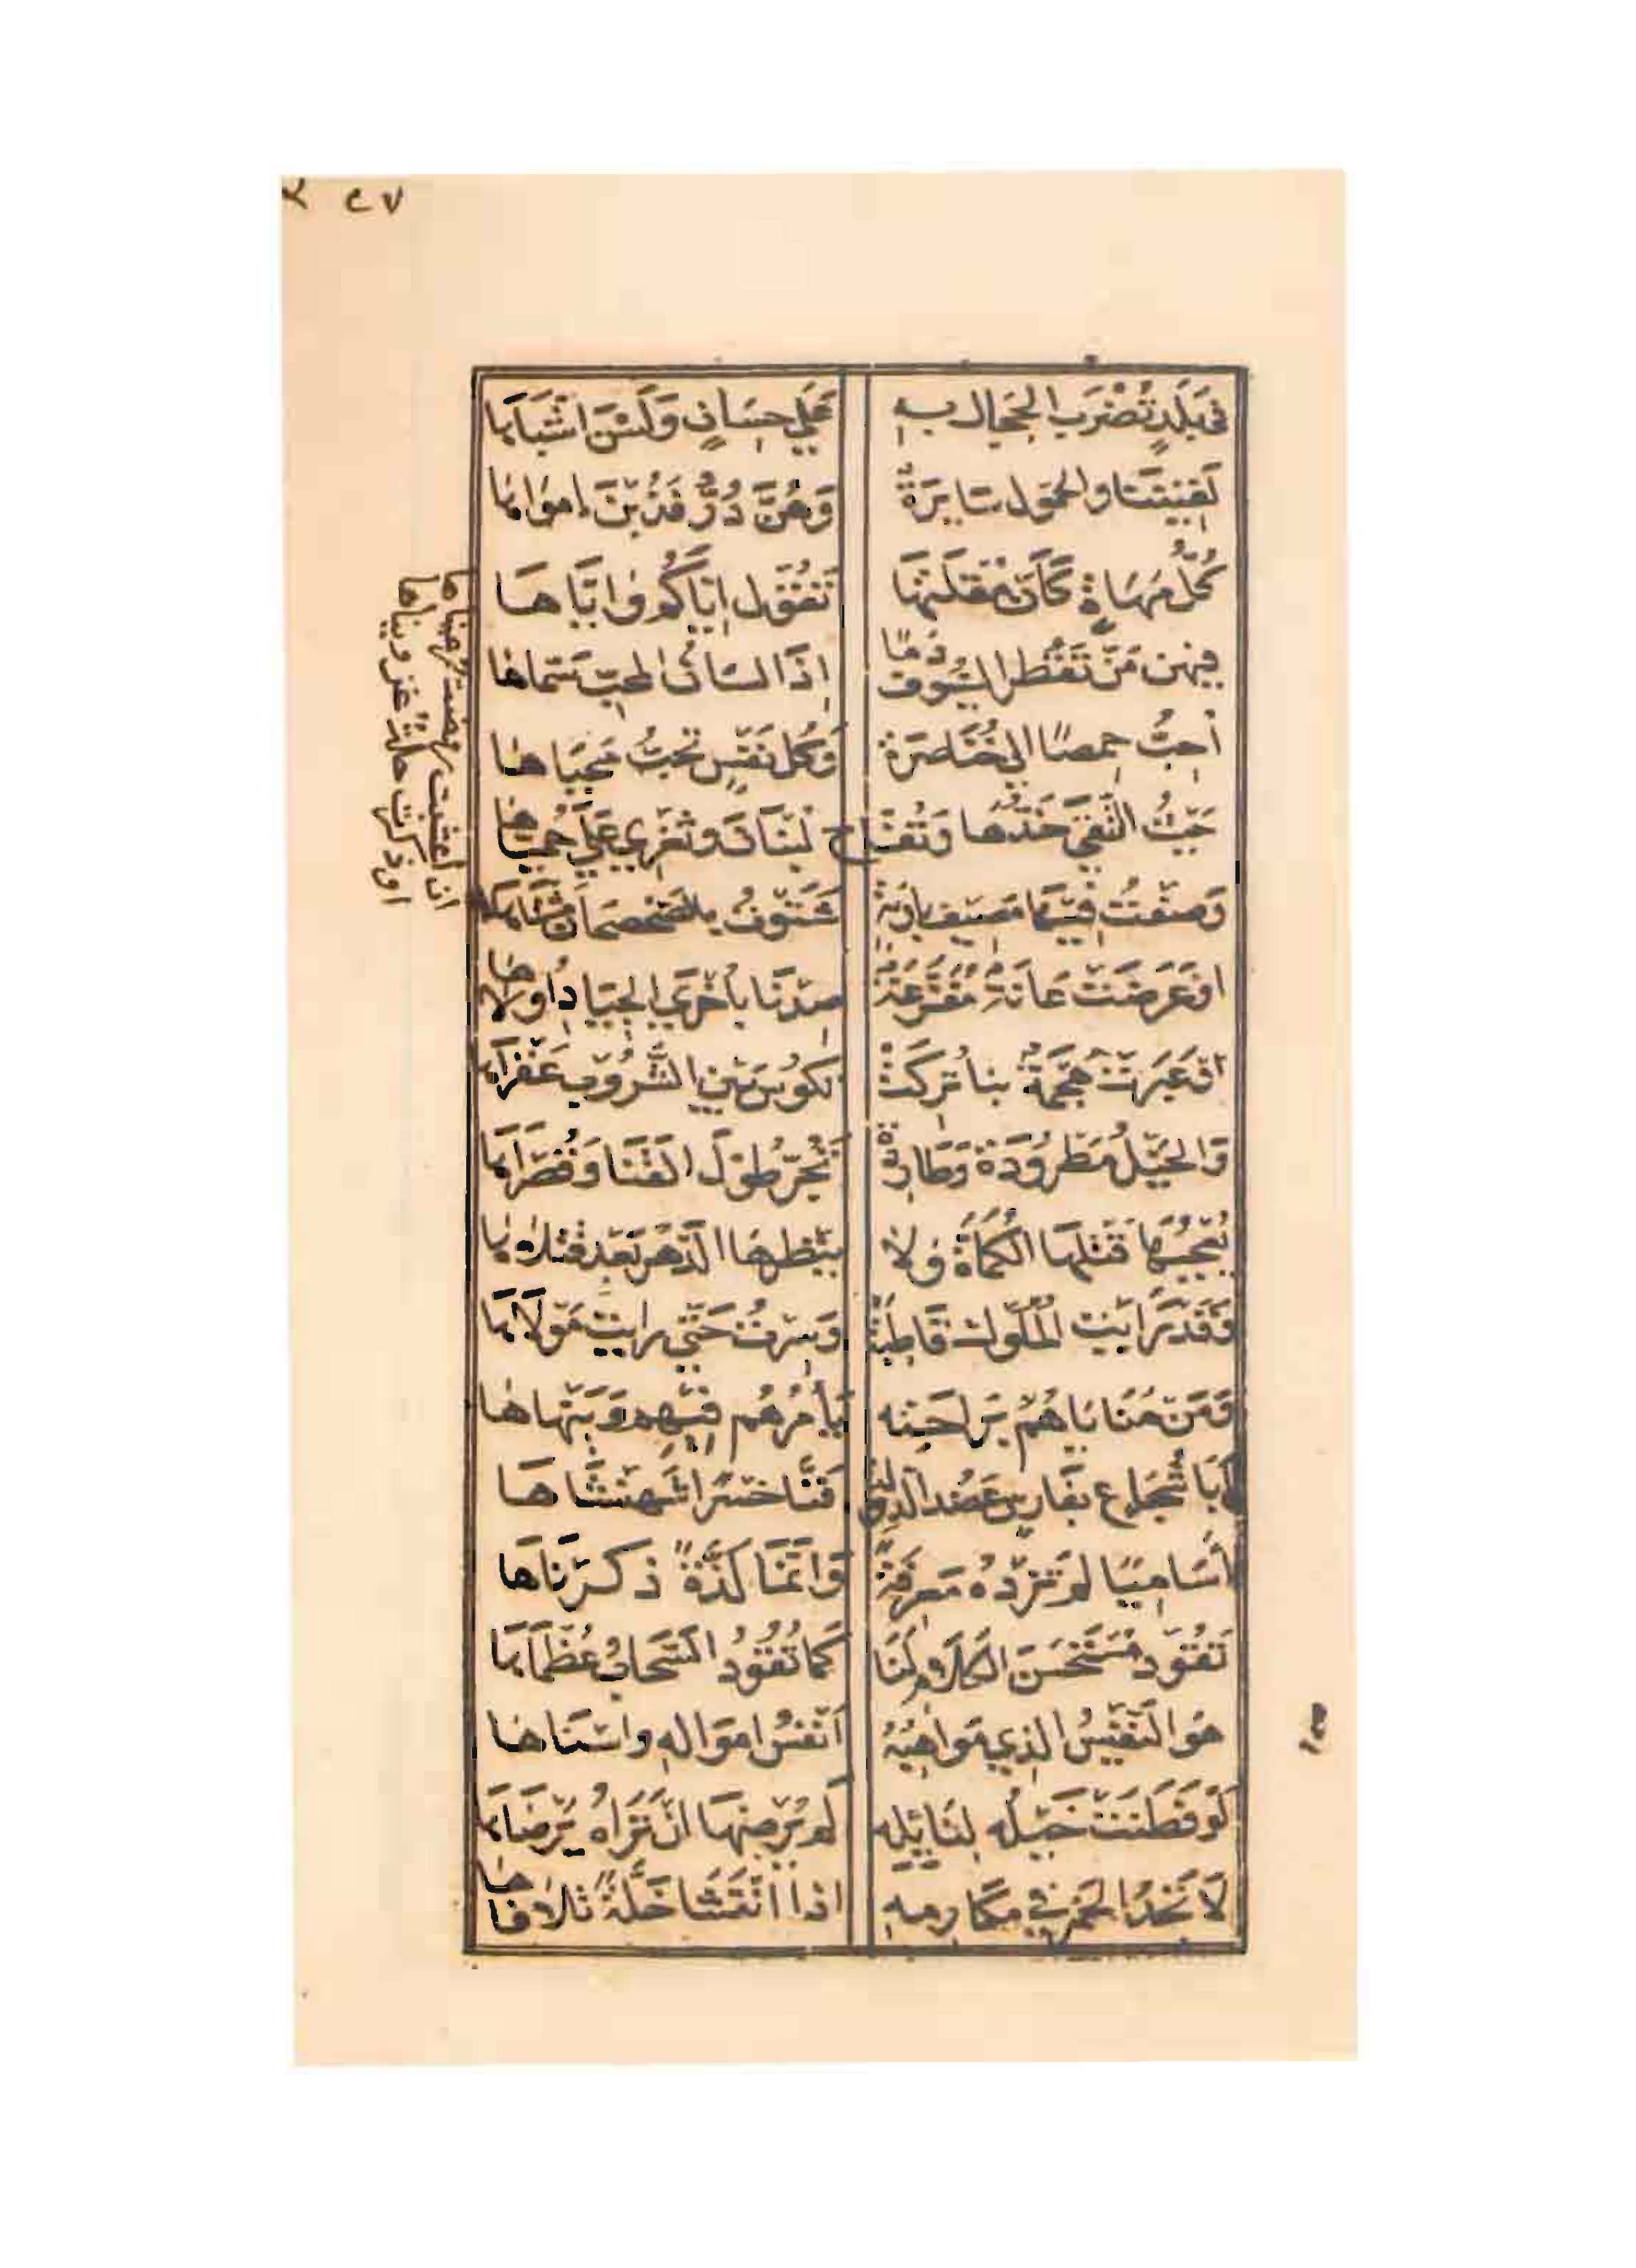 ٢ ٤٧
في بلدٍ تُضْرَب الحجال به على حِسَانٍ وَلَسْنَ اَشْبَاهَا
لَقِينَنَا والحمول سَايِرَةٌ وَهُنَّ دُرٌّ فَذُبْنَ امْوَاهَا
كُلُّ مَهَاةٍ كَأَنَّ مُقْلَتَهَا تَقُول اِيَّاكُم وَاِيَّاهَا
فيهن مَنْ تَقْطُر السُّيُوف دَمًا اِذَا لسَانُ المحبّ سَمَّاهَا
اُحِبُّ حِمصًا الى خُنَاصِرَة وَكُل نَفْسٍ تُحِبُّ مَحْيَاهَا
حَيْثُ الْتَقَى خَدُّهَا وَتُفَّاح لُبْنَانَ وثَغْرِي عَلَى حُمَيَّاهَا
وَصِفْتُ فِيهَا مَصِيف بَادِيَةٍ شَتَوْتُ بالصَحصحان مَشْتَاهَا
ان اعشبت روضة رعيناها
او ذكرت حلة غزوناها
او عَرَضَتْ عَانَةٌ مُقَزَّعَةٌ صِدْنَا بأُخْرَى الجيَادِ أُولاهَا
اَو عَبَرَتْ هَجْمَةٌ بنا تُرِكَتْ تَكُوسُ بَيْنَ الشُّرُوبِ عَقْرَاهَا
وَالخَيْلُ مَطْرُودَة وَطَارِدَةٌ تَجُرّ طُولَ القَنَا وَقُصْرَاهَا
يُعْجِبُهَا قَتْلهَا الكُمَاةَ وَلَا يُنْظِرهَا الدَّهر بَعْد قَتْلاهَا
وَقَد رَايْت المُلُوك قَاطِبَةً وَسِرْتُ حَتَّى رايت مَوْلَاهَا
وَمَنْ مَنَايَاهُمْ بِرَاحَتِه يَأمُرُهُم فِيهِم وَيَنْهَاهَا
أَبَا شُجَاع بفَارِسٍ عَضُد الدولة فَنَّاخُسْرًا شَهَنْشَاهَا
اَسَامِيًا لم تَزِدْهُ مَعرِفَةً وَاِنَّمَا لَذَّةً ذكرْنَاهَا
تَقُود مُسْتَحْسَنَ الكلَام لَنَا كَمَا تَقُودُ السَّحَابُ عُظْمَاهَا
هُو النَّفِيسُ الذي مَوَاهِبُهُ اَنْفَسُ اموَالهِ واسْنَاهَا
لَوْ فَطَنَتْ خَيْلُه لِنَايِلِه لم يُرْضِهَا ان تَرَاهُ يَرْضَاهَا
لَا تَجِدُ الخَمر في مكَارِمِهِ اذا انْتَشَا خَلَّةً تلافاها